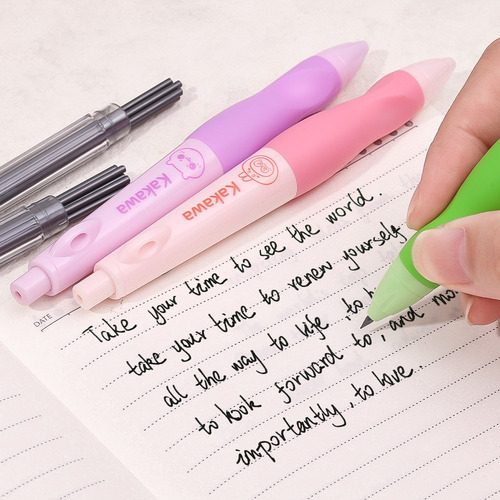 Kakawa
Kakawa
DATE
Take your time to see the world.
take your time to renew yourself
all the way to life, to
to look forward to, and mo
importantly, to love.